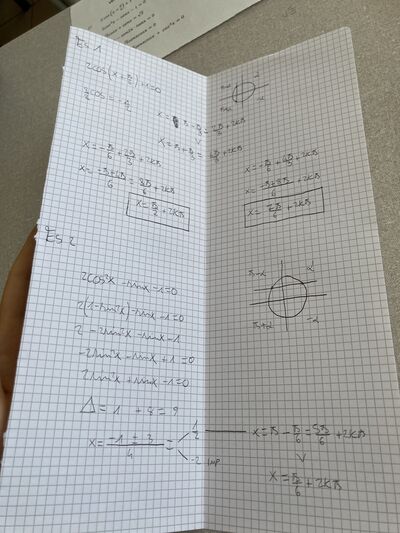 Es 1
2cos(x + π/6) + 1 = 0
cos = -1/2
x = π - π/3 = 2π/3 + 2kπ
V
x = π + π/3 = 4π/3 + 2kπ
x = -π/6 + 2π/3 + 2kπ
x = -π+4π/6 = 3π/6 + 2kπ
x = π/2 + 2kπ
π-α
α
-α
x = -π/6 + 4π/3 + 2kπ
x = -π+8π/6 + 2kπ
x = 7π/6 + 2kπ
Es 2
2cos²x - sinx - 1 = 0
2(1-sin²x) - sinx - 1 = 0
2 - 2sin²x - sinx - 1
-2sin²x - sinx + 1 = 0
2sin²x + sinx - 1 = 0
Δ = 1 + 8 = 9
x = -1 ± 3 / 4 =
1/2
-2 imp
π-α
α
π+α
-α
x = π - π/6 = 5π/6 + 2kπ
V
x = π/6 + 2kπ